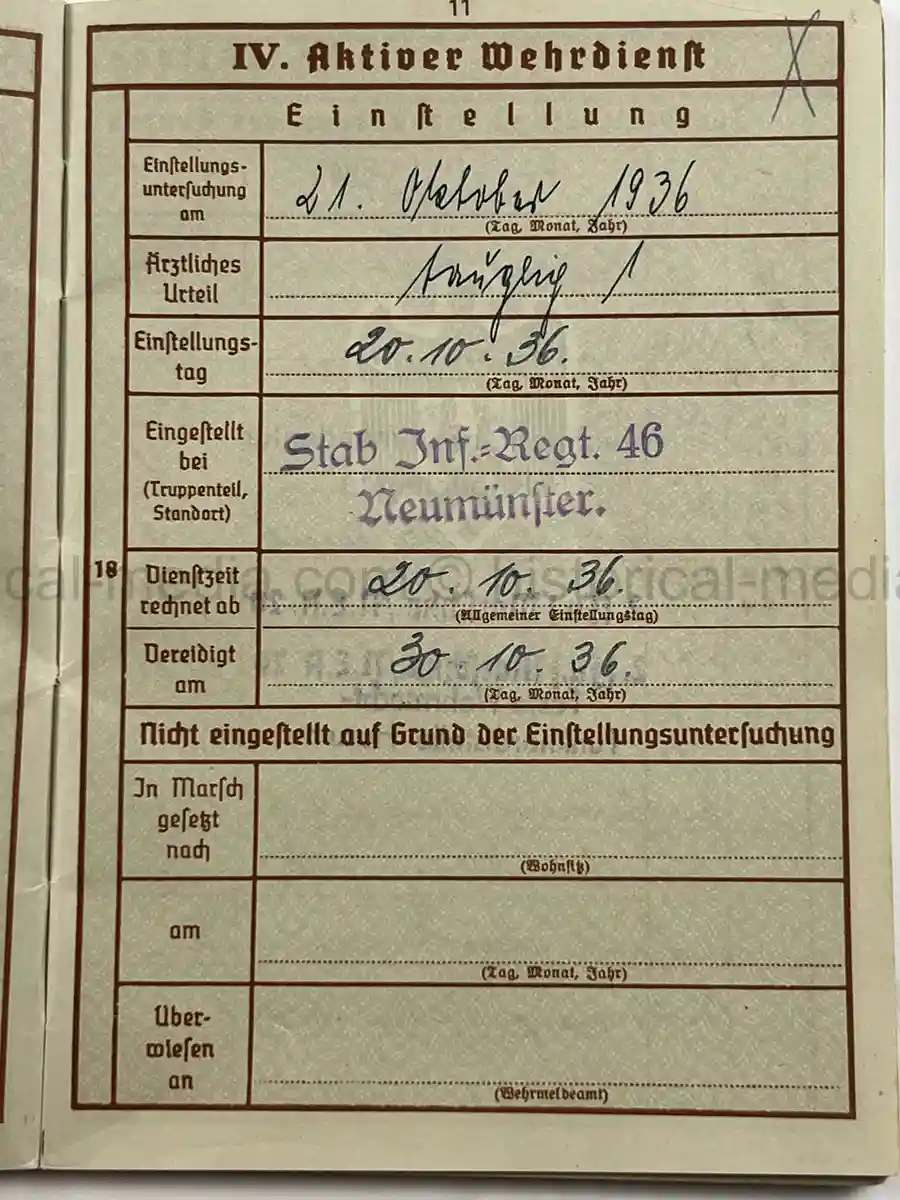 11
IV. Aktiver Wehrdienst
Einstellung
Einstellungs-
untersuchung
am
21. Oktober 1936
(Tag, Monat, Jahr)
Ärztliches
Urteil
tauglig 1
Einstellungs-
tag
20.10.36.
(Tag, Monat, Jahr)
Eingestellt
bei
(Truppenteil,
Standort)
Stab Inf.-Regt. 46
Neumünster.
18
Dienstzeit
rechnet ab
20. 10. 36.
(Allgemeiner Einstellungstag)
Vereidigt
am
30. 10. 36.
(Tag, Monat, Jahr)
Nicht eingestellt auf Grund der Einstellungsuntersuchung
In Marsch
gesetzt
nach
(Wohnsitz)
am
(Tag, Monat, Jahr)
Über-
wiesen
an
(Wehrmeldeamt)
cal-media.com © historical-media